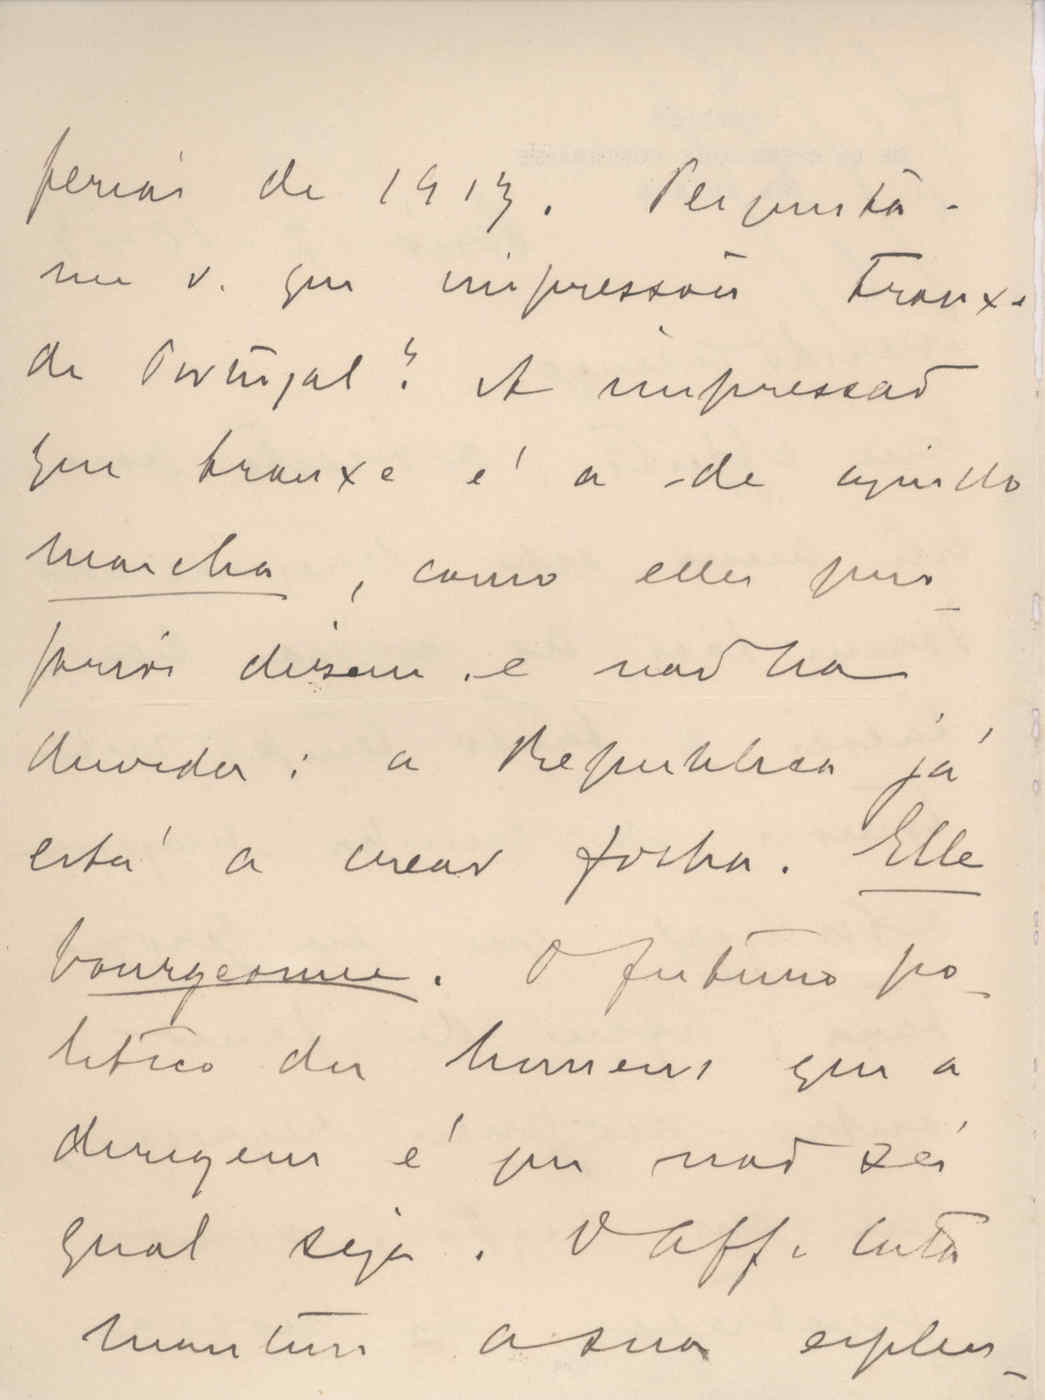 ferias de 1913. Pergunta-
me v. que impressões trouxe
de Portugal? A impressaõ
que trouxe é a de aquillo
marcha, como elles pro-
prios disem. e naõ ha
duvida: a Republica já
está a crear forha. Elle
bourgeonne. O futuro po-
litico dos homens que a
dirigem é que naõ sei
qual seja. O Aff. Costa
mantem a sua esplen-